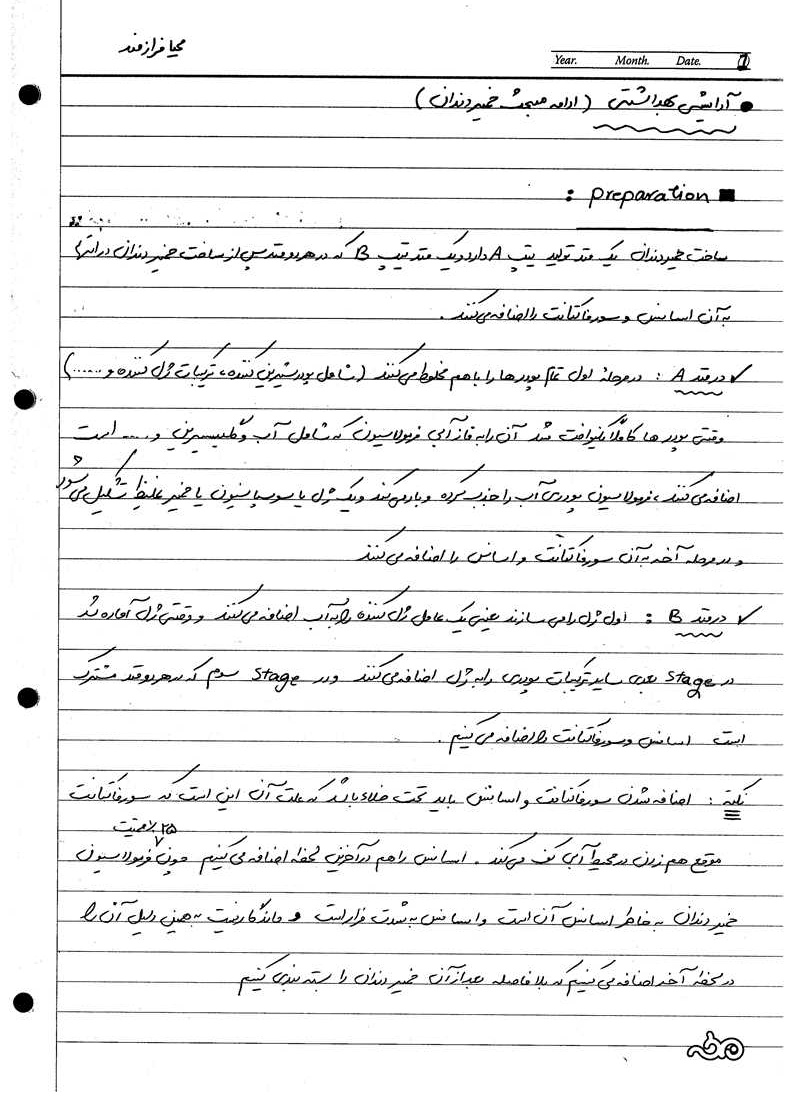 محیا فرازمند
Year. Month. Date. 1
آرایشی بهداشتی (ادامه مبحث خمیردندان)
preparation :
ساخت خمیردندان یک متد تولید تیپ A دارد و یک متد تیپ B که در هر دو متد پس از ساخت خمیر دندان در انتها
به آن اسانس و سورفاکتانت را اضافه می‌کنند.
✓ در متد A : در مرحله اول تمام پودرها را با هم مخلوط می‌کنند (شامل پودر شیرین کننده، ترکیبات ژل کننده و ......)
وقتی پودر ها کاملاً یکنواخت شد آن را به فاز آبی فرمولاسیون که شامل آب و گلیسیرین و .... است
اضافه می‌کنند، فرمولاسیون پودری آب را جذب کرده و باد می‌کند و یک ژل یا سوسپانسیون یا خمیر غلیظ تشکیل می‌شود
و در مرحله آخر به آن سورفاکتانت و اسانس را اضافه می‌کنند
✓ در متد B : اول ژل را می سازند یعنی یک عامل ژل کننده را به آب اضافه می‌کنند و وقتی ژل آماده شد
در stage بعدی سایر ترکیبات پودری را به ژل اضافه می‌کنند و در stage سوم که در هر دو متد مشترک
است اسانس و سورفاکتانت را اضافه می‌کنیم.
نکته : اضافه شدن سورفاکتانت و اسانس باید تحت خلاء باشد که علت آن این است که سورفاکتانت
موقع هم زدن در محیط آبی کف می‌کند. اسانس را هم در آخرین لحظه اضافه می‌کنیم چون ۲۵٪ اهمیت فرمولاسیون
خمیر دندان به خاطر اسانس آن است و اسانس به شدت فرار است و ماندگار نیست به همین دلیل آن را
در لحظه آخر اضافه می‌کنیم که بلافاصله بعد از آن خمیر دندان را بسته بندی کنیم